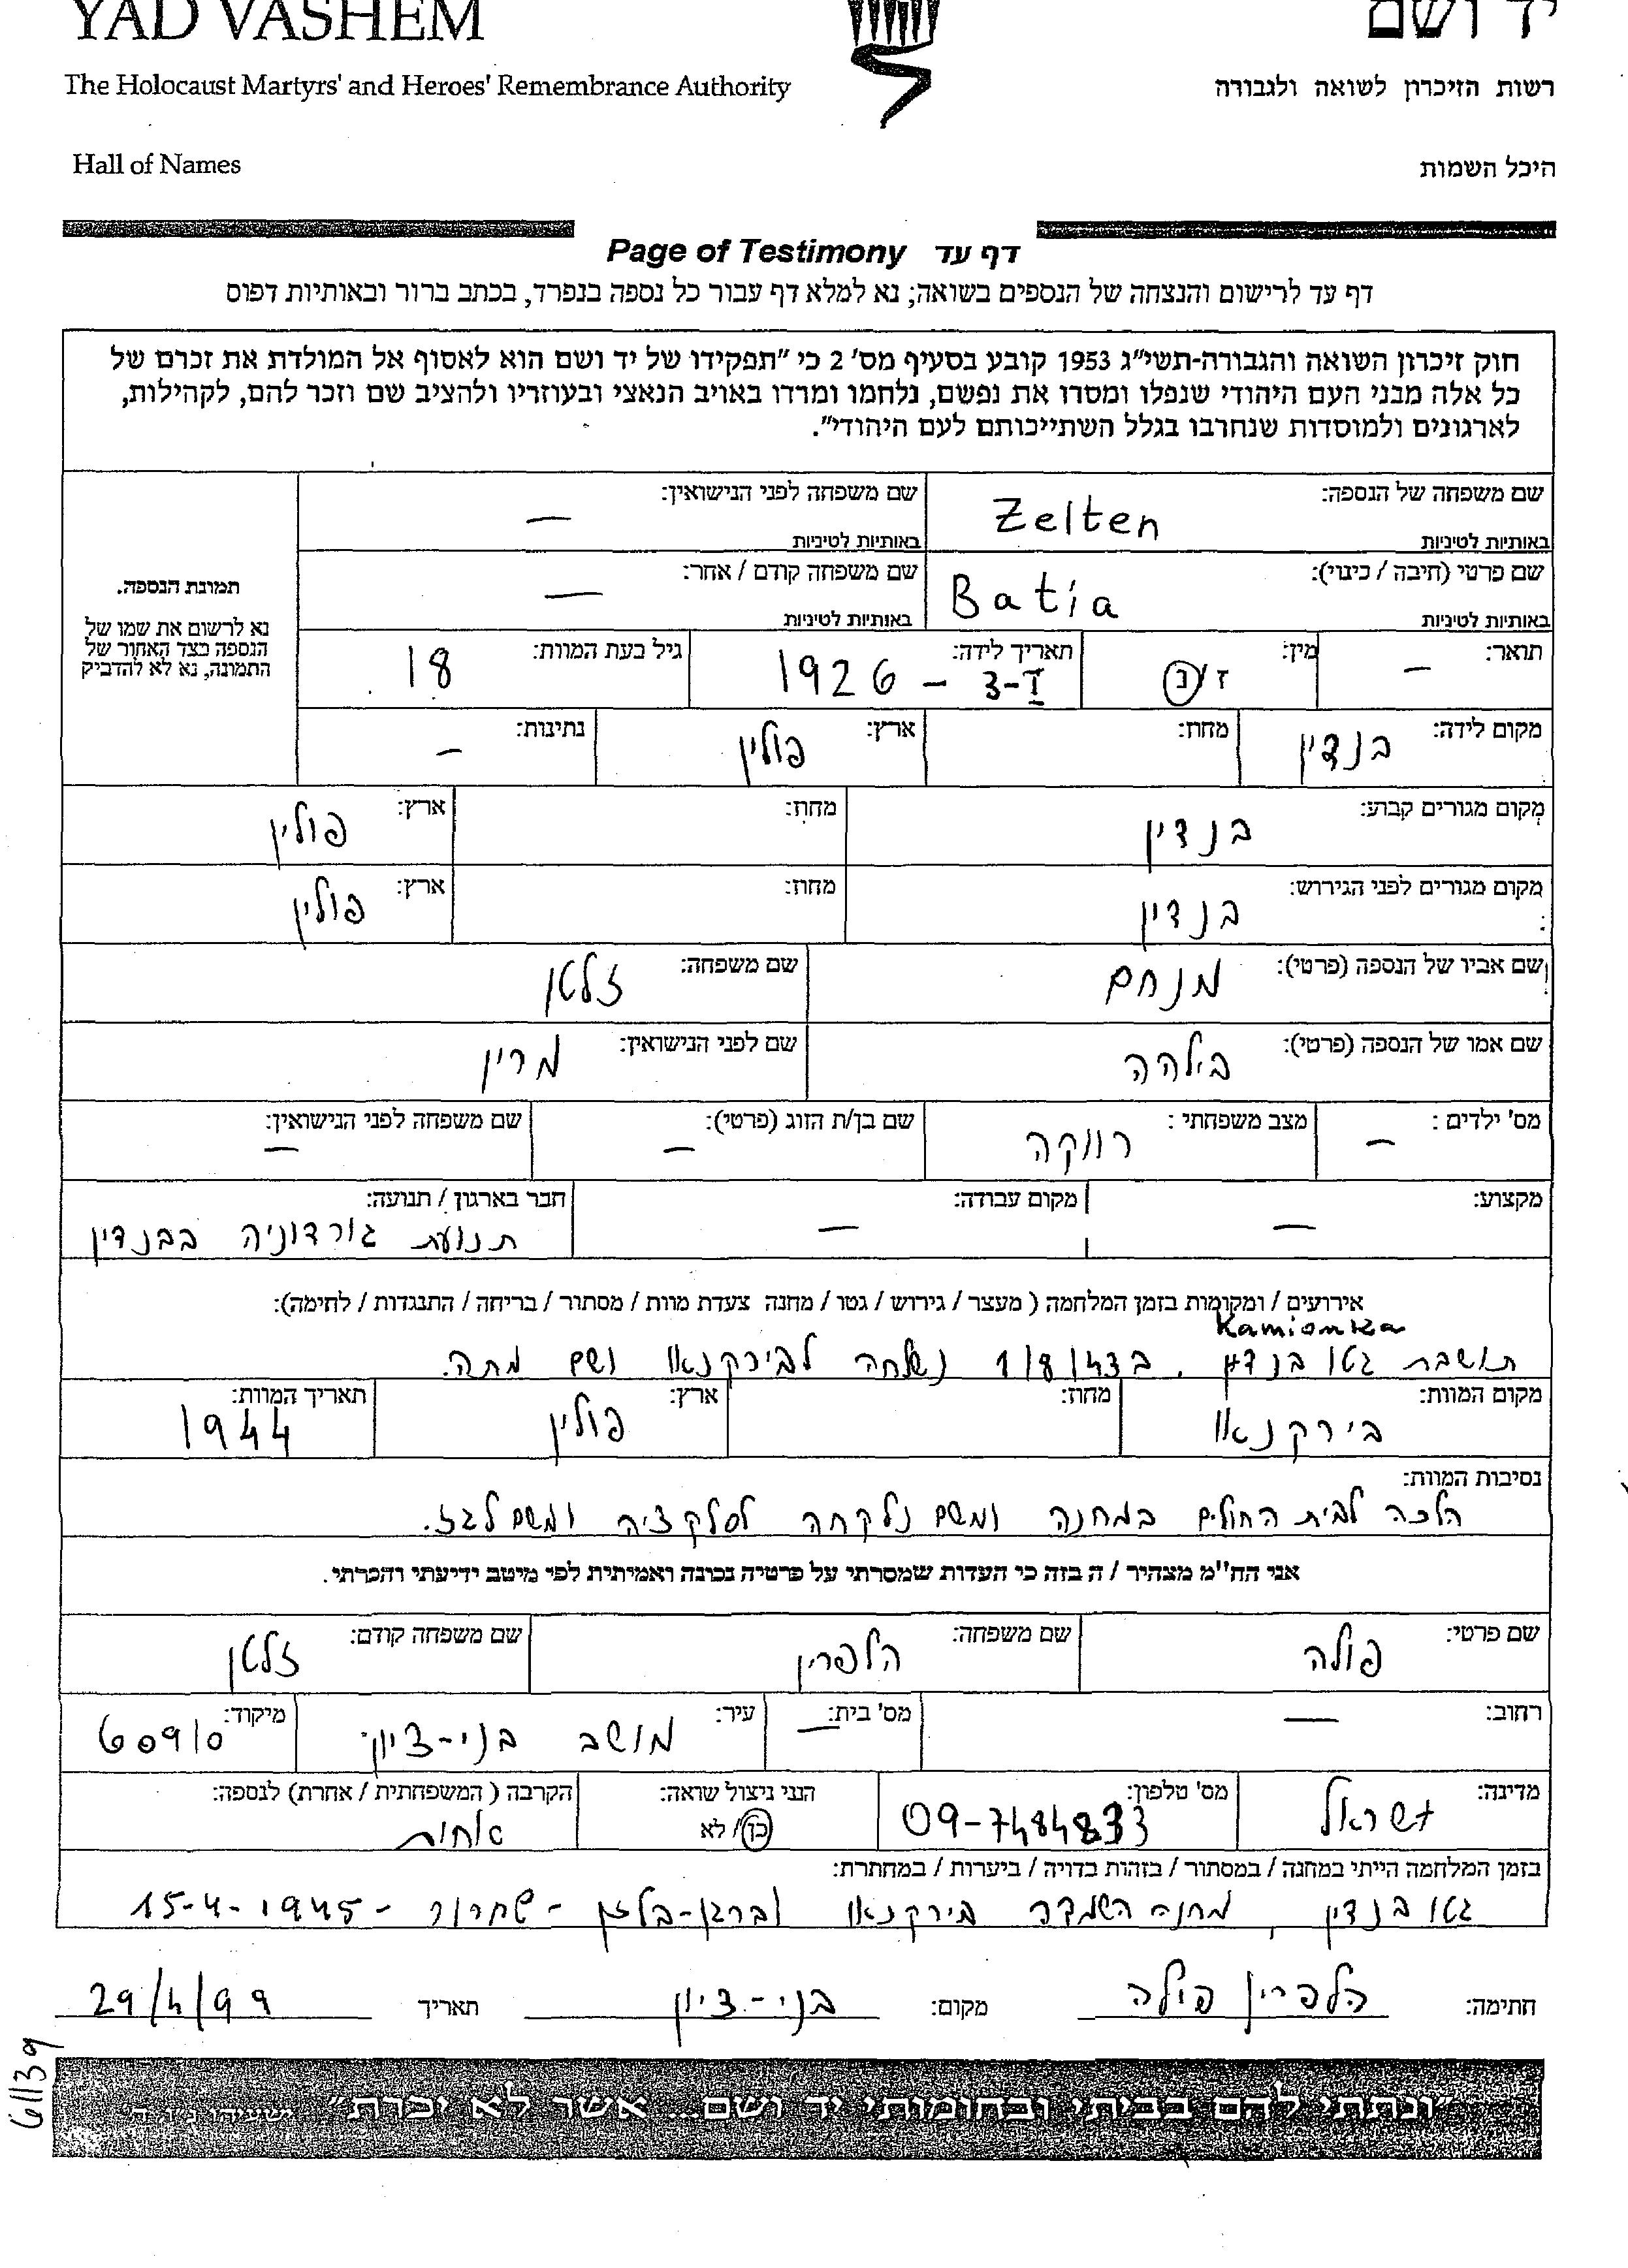 YAD VASHEM יד ושם
The Holocaust Martyrs' and Heroes' Remembrance Authority רשות הזיכרון לשואה ולגבורה
Hall of Names היכל השמות
Page of Testimony דף עד
דף עד לרישום והנצחה של הנספים בשואה; נא למלא דף עבור כל נספה בנפרד, בכתב ברור ובאותיות דפוס
חוק זיכרון השואה והגבורה-תשי"ג 1953 קובע בסעיף מס' 2 כי "תפקידו של יד ושם הוא לאסוף אל המולדת את זכרם של
כל אלה מבני העם היהודי שנפלו ומסרו את נפשם, נלחמו ומרדו באויב הנאצי ובעוזריו ולהציב שם וזכר להם, לקהילות,
לארגונים ולמוסדות שנחרבו בגלל השתייכותם לעם היהודי".
שם משפחה של הנספה: Zelten שם משפחה לפני הנישואין: —
באותיות לטיניות באותיות לטיניות
שם פרטי (חיבה / כינוי): Batia שם משפחה קודם / אחר: —
באותיות לטיניות באותיות לטיניות
תמונת הנספה.
נא לרשום את שמו של
הנספה בצד האחור של
התמונה, נא לא להדביק
תואר: — מין: ז / נ תאריך לידה: 3-I - 1926 גיל בעת המוות: 18
מקום לידה: בנדין מחוז: ארץ: פולין נתינות: —
מקום מגורים קבוע: בנדין מחוז: ארץ: פולין
מקום מגורים לפני הגירוש: בנדין מחוז: ארץ: פולין
שם אביו של הנספה (פרטי): מנחם שם משפחה: זלטן
שם אמו של הנספה (פרטי): בילהה שם לפני הנישואין: מרין
מס' ילדים: — מצב משפחתי: רווקה שם בן/ת הזוג (פרטי): — שם משפחה לפני הנישואין: —
מקצוע: — מקום עבודה: — חבר בארגון / תנועה:
תנועת גורדוניה בבנדין
אירועים / ומקומות בזמן המלחמה ( מעצר / גירוש / גטו / מחנה צעדת מוות / מסתור / בריחה / התנגדות / לחימה):
Kamionka
תושבת גטו בנדין. ב 1/8/43 נשלחה לבירקנאו ושם מתה.
מקום המוות: בירקנאו מחוז: ארץ: פולין תאריך המוות: 1944
נסיבות המוות:
הלכה לבית החולים במחנה ומשם נלקחה לסלקציה ומשם לגז.
אני הח"מ מצהיר / ה בזה כי העדות שמסרתי על פרטיה נכונה ואמיתית לפי מיטב ידיעתי והכרתי.
שם פרטי: פולה שם משפחה: הלפרין שם משפחה קודם: זלטן
רחוב: — מס' בית: — עיר: מושב בני-ציון מיקוד: 60910
מדינה: ישראל מס' טלפון: 09-7484833 הנני ניצול שואה: כן / לא הקרבה ( המשפחתית / אחרת) לנספה:
אחות
בזמן המלחמה הייתי במחנה / במסתור / בזהות בדויה / ביערות / במחתרת:
גטו בנדין, מחנה השמדה בירקנאו וברגן-בלזן - שחרור - 15-4-1945
חתימה: הלפרין פולה מקום: בני-ציון תאריך 29/4/99
"ונתתי להם בביתי ובחומותי יד ושם... אשר לא יכרת" ישעיהו נ"ו, ה'